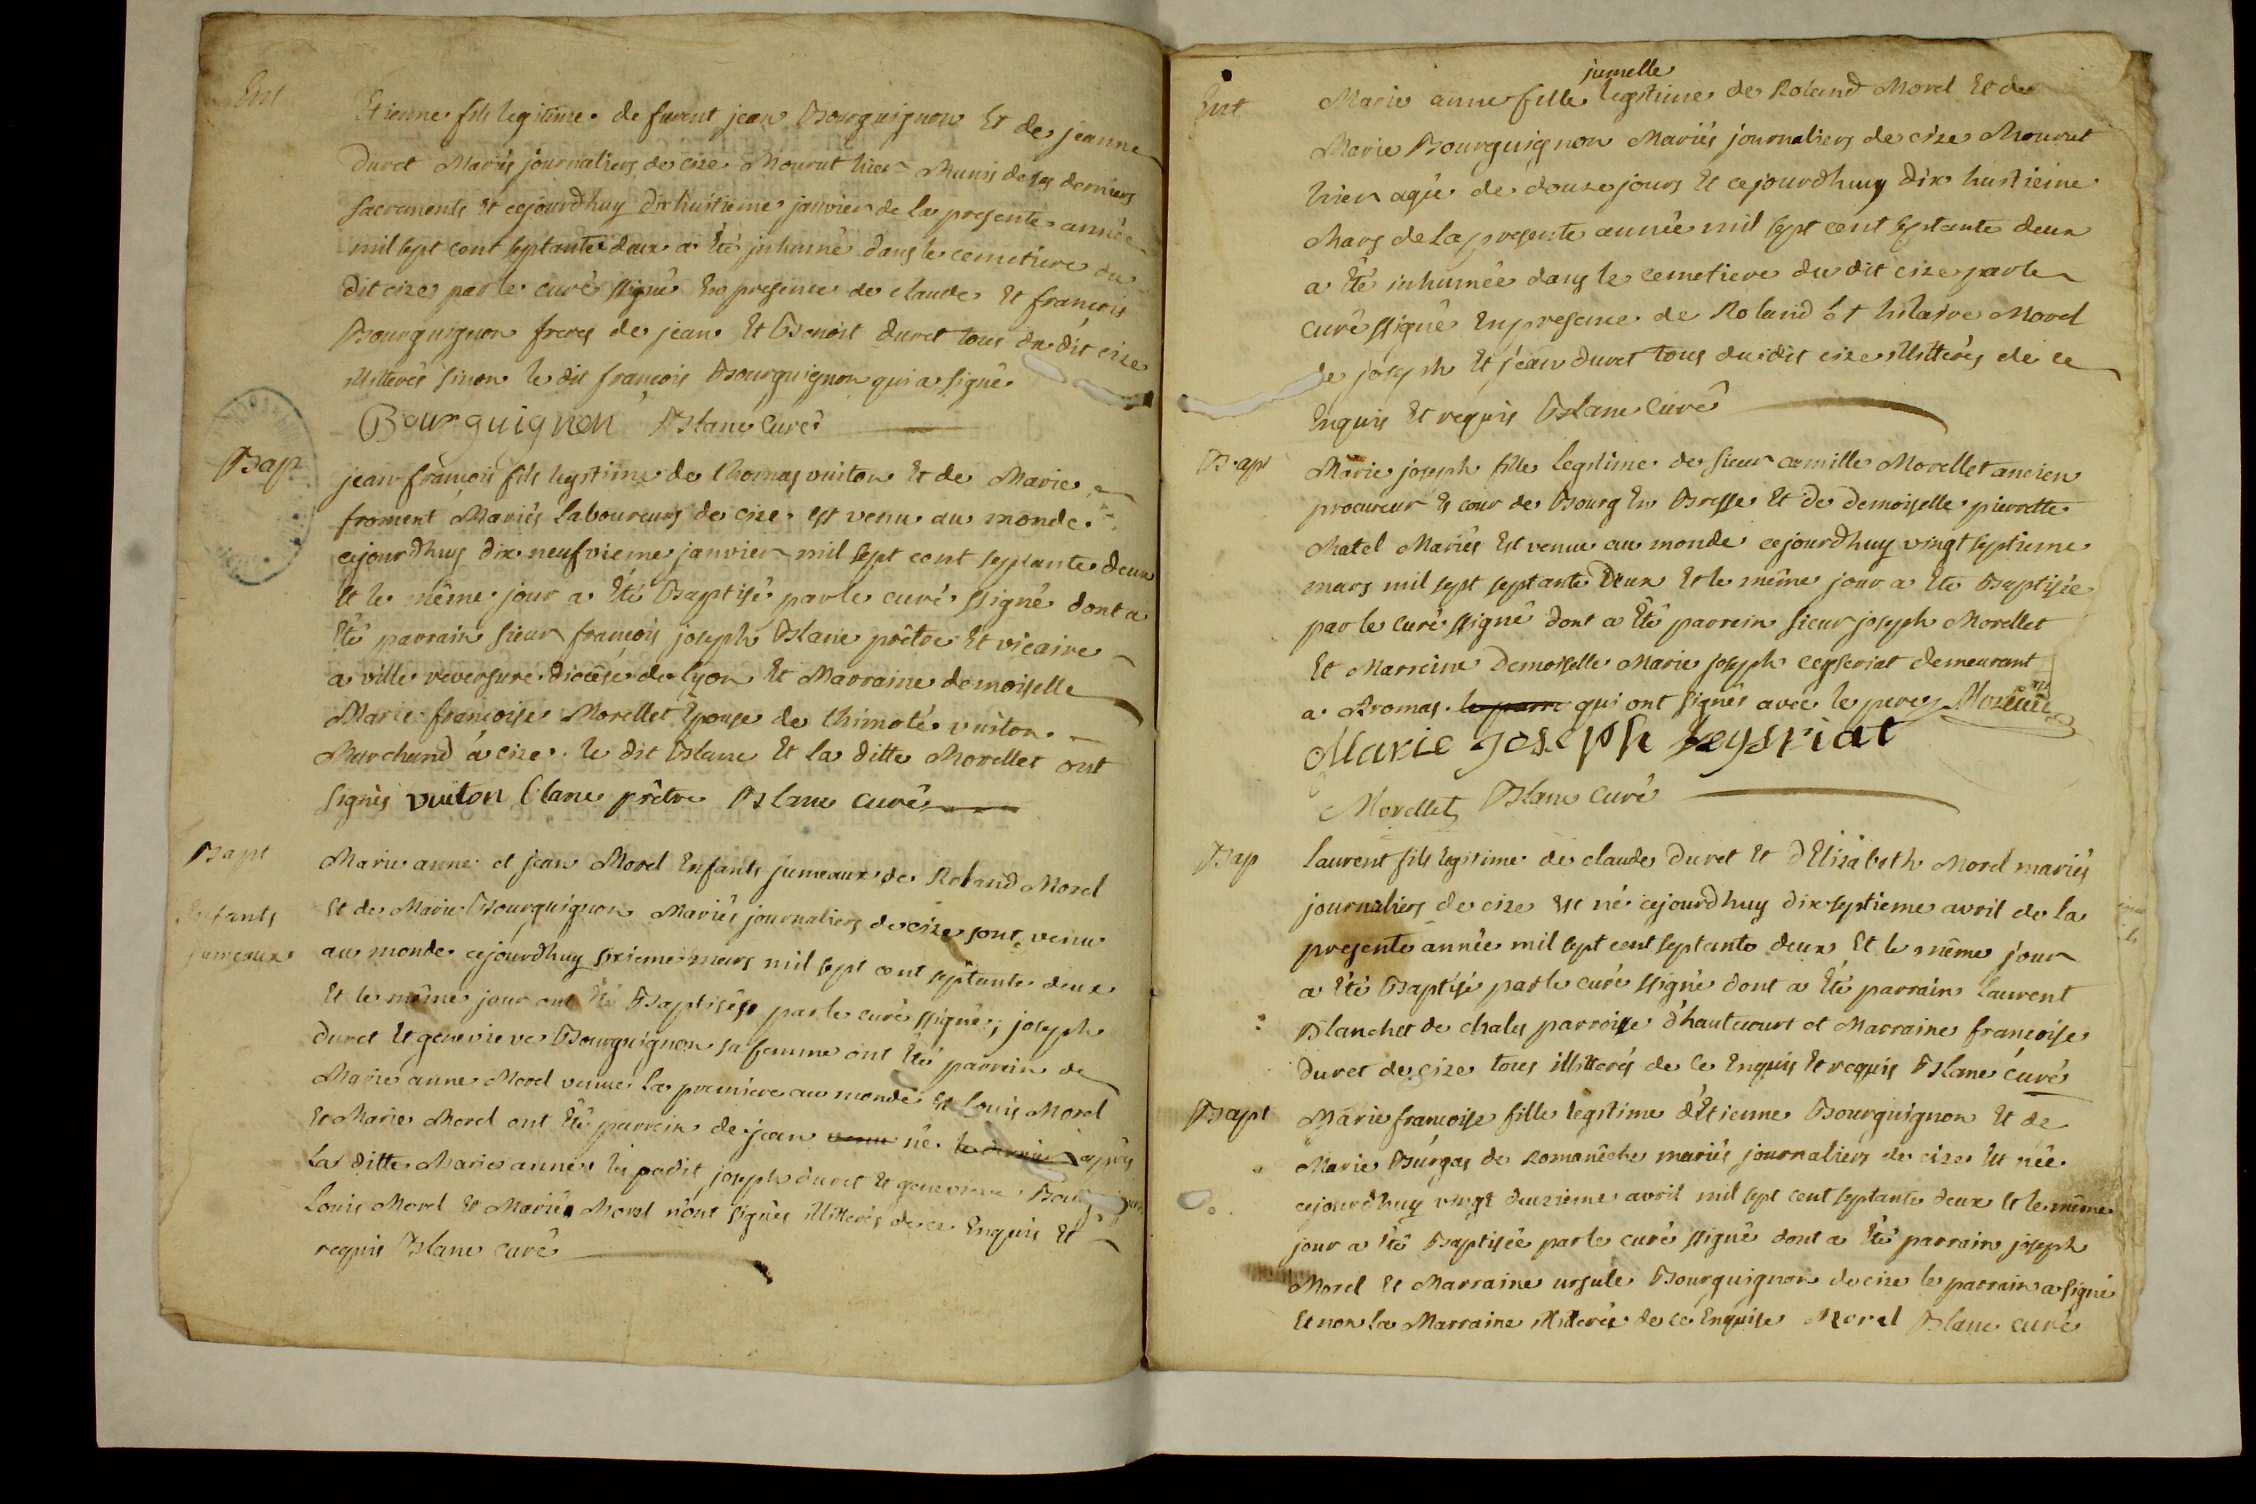 Ent
Etienne fils legitime de furent jean Bourguignon Et de jeanne
Duret Mariés journaliers de cize Mourut hier Munis de ses derniers
sacrements et cejourdhuy dix huitieme janvier de la presente année
mil sept cent septante deux a Eté inhumé dans le cemetiere du
dit cize par le curé ssigné En presence de claude Et francois
Bourguignon freres de jean Et Benoit Duret tous du dit cize
illitterés sinon le dit francois Bourguignon qui a signé
Bourguignon Blanc Curé
Bap
jean francois fils legitime de thomas vuiton Et de Marie
froment Mariés Laboureurs de cize est venu au monde
cejourdhuy dix neufvieme janvier mil sept cent septante deux
Et le même jour a Eté Baptisé par le curé ssigné dont a
Eté parrain sieur francois joseph Blanc prêtre Et vicaire
a ville reversure diocése de lyon Et Marraine demoiselle
Marie francoise Morellet Epouse de thimoté vuiton
Marchand à cize le dit Blanc Et la ditte Morellet ont
signés vuiton Blanc prêtre Blanc curé
Bapt
Enfants
jumeaux
Marie anne et jean Morel Enfants jumeaux de Roland Morel
Et de Marie Bourguignon Mariés journaliers de cize sont venu
au monde cejourdhuy sixieme mars mil sept cent septante deux
Et le même jour ont Eté Baptisés par le curé ssigné; joseph
Duret Et genevieve Bourguignon sa femme ont Eté parrein de
Marie anne Morel venue la premiere au monde Et Louis Morel
Et Marie Morel ont Eté parrein de jean venu né le dernier après
la ditte Marie anne les joseph duret Et genevieve
Louis Morel Et Marie Morel n'ont signés illitterés de ce Enquis Et
requis Blanc curé
Ent
jumelle
Marie anne fille legitime de Roland Morel Et de
Marie Bourguignon Mariés journaliers de cize Mourut
hier agée de douze jours Et cejourdhuy dix huitieme
Mars de la presente année mil sept cent septante deux
a Eté inhumée dans le cemetiere du dit cize par le
curé ssigné En presence de Roland Et hilaire Morel
de joseph Et jean duret tous du dit cize illitterés de ce
Enquis Et requis Blanc Curé
Bapt
Marie joseph fille legitime de sieur camille Morellet ancien
procureur Es cour de Bourg En Bresse Et de Demoiselle pierrette
Chatel Mariés Est venue au monde cejourdhuy vingt septieme
mars mil sept septante Deux Et le même jour a Eté Baptisée
par le curé ssigné dont a Eté parrein sieur joseph Morellet
Et Marreine Demoiselle Marie joseph ceyseriat demeurant
a Aromas le parre qui ont signés avec le pere Morellet
Marie joseph seysriat
Morellet Blanc Curé
Bap
laurent fils legitime de claude duret Et d'Elizabeth Morel mariés
journaliers de cize est né cejourdhuy dix septieme avril de la
presente année mil sept cent septante deux Et le même jour
a Eté Baptisé par le curé ssigné dont a Eté parrain laurent
Blanchet de chales parroisse d'hautecourt et Marraine francoise
duret de cize tous illitterés de ce Enquis Et requis Blanc curé
Bapt
Marie francoise fille legitime d'Etienne Bourguignon Et de
Marie Burgas de Romanêche mariés journaliers de cize Est née
cejourdhuy vingt deuxieme avril mil sept cent septante deux Et le même
jour a Eté Baptisée par le curé ssigné dont a Eté parrain joseph
Morel Et Marraine ursule Bourguignon de cize le parrain a signé
Et non la Marraine illiterée de ce Enquise Morel Blanc curé